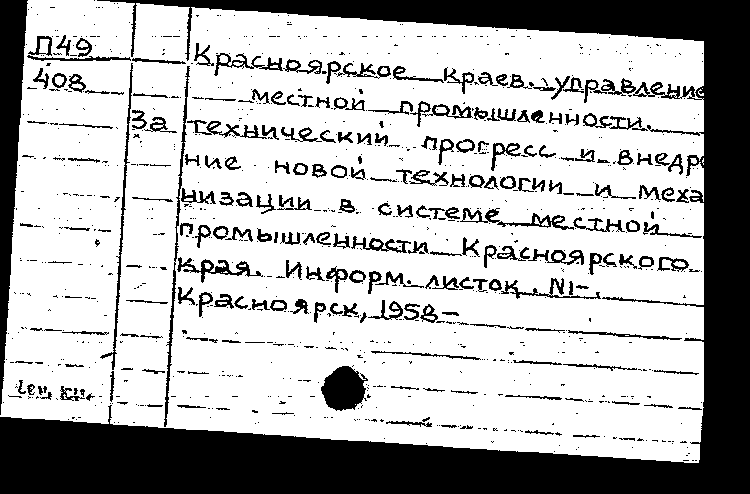 П49
408
Красноярское краев. управление
местной промышленности.
За технический прогресс и внедре
ние новой технологии и меха
низации в системе местной
промышленности Красноярского
края. Информ. листок. N1-.
Красноярск, 1958-